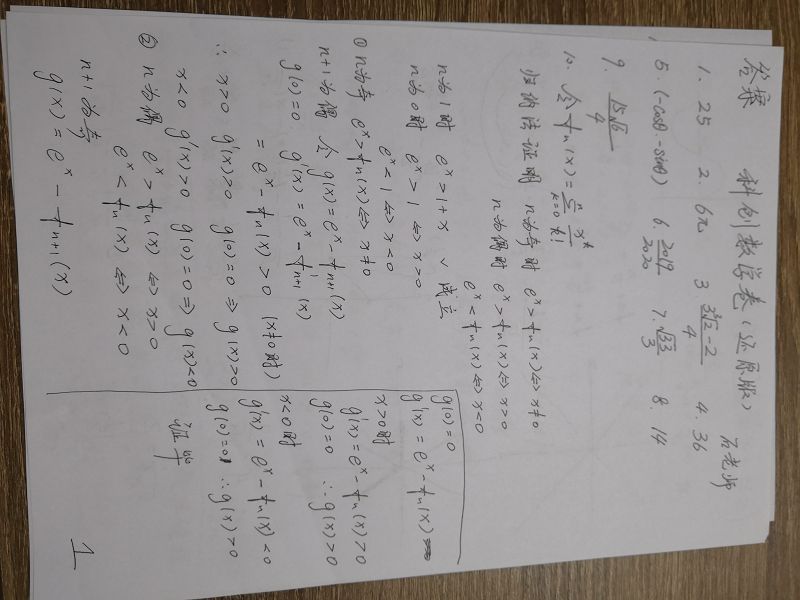 答案 科创数学卷(还原版) 石老师
1. 25 2. 6π 3. (3√2-2)/4 4. 36
5. (-cosθ -sinθ) 6. 2019/2020 7. √33/3 8. 14
9. 15√6/4
10. 令 fn(x) = Σ_{k=0}^{n} x^k/k!
归纳法证明 n为奇时 e^x > fn(x) ⇔ x≠0
n为偶时 e^x > fn(x) ⇔ x>0
e^x < fn(x) ⇔ x<0
n为1时 e^x > 1+x ✓ 成立
n为0时 e^x > 1 ⇔ x>0
e^x < 1 ⇔ x<0
① n为奇 e^x > fn(x) ⇔ x≠0
n+1为偶 令 g(x) = e^x - f_{n+1}(x)
g(0)=0 g'(x) = e^x - f'_{n+1}(x)
= e^x - fn(x) > 0 (x≠0时)
∴ x>0 g'(x)>0 g(0)=0 ⇒ g(x)>0
x<0 g'(x)>0 g(0)=0 ⇒ g(x)<0
② n为偶 e^x > fn(x) ⇔ x>0
e^x < fn(x) ⇔ x<0
n+1为奇
g(x) = e^x - f_{n+1}(x)
g(0)=0
g'(x) = e^x - fn(x)
x>0时
g'(x) = e^x - fn(x) > 0
g(0)=0 ∴ g(x)>0
x<0时
g'(x) = e^x - fn(x) < 0
g(0)=0 ∴ g(x)>0
证毕
1